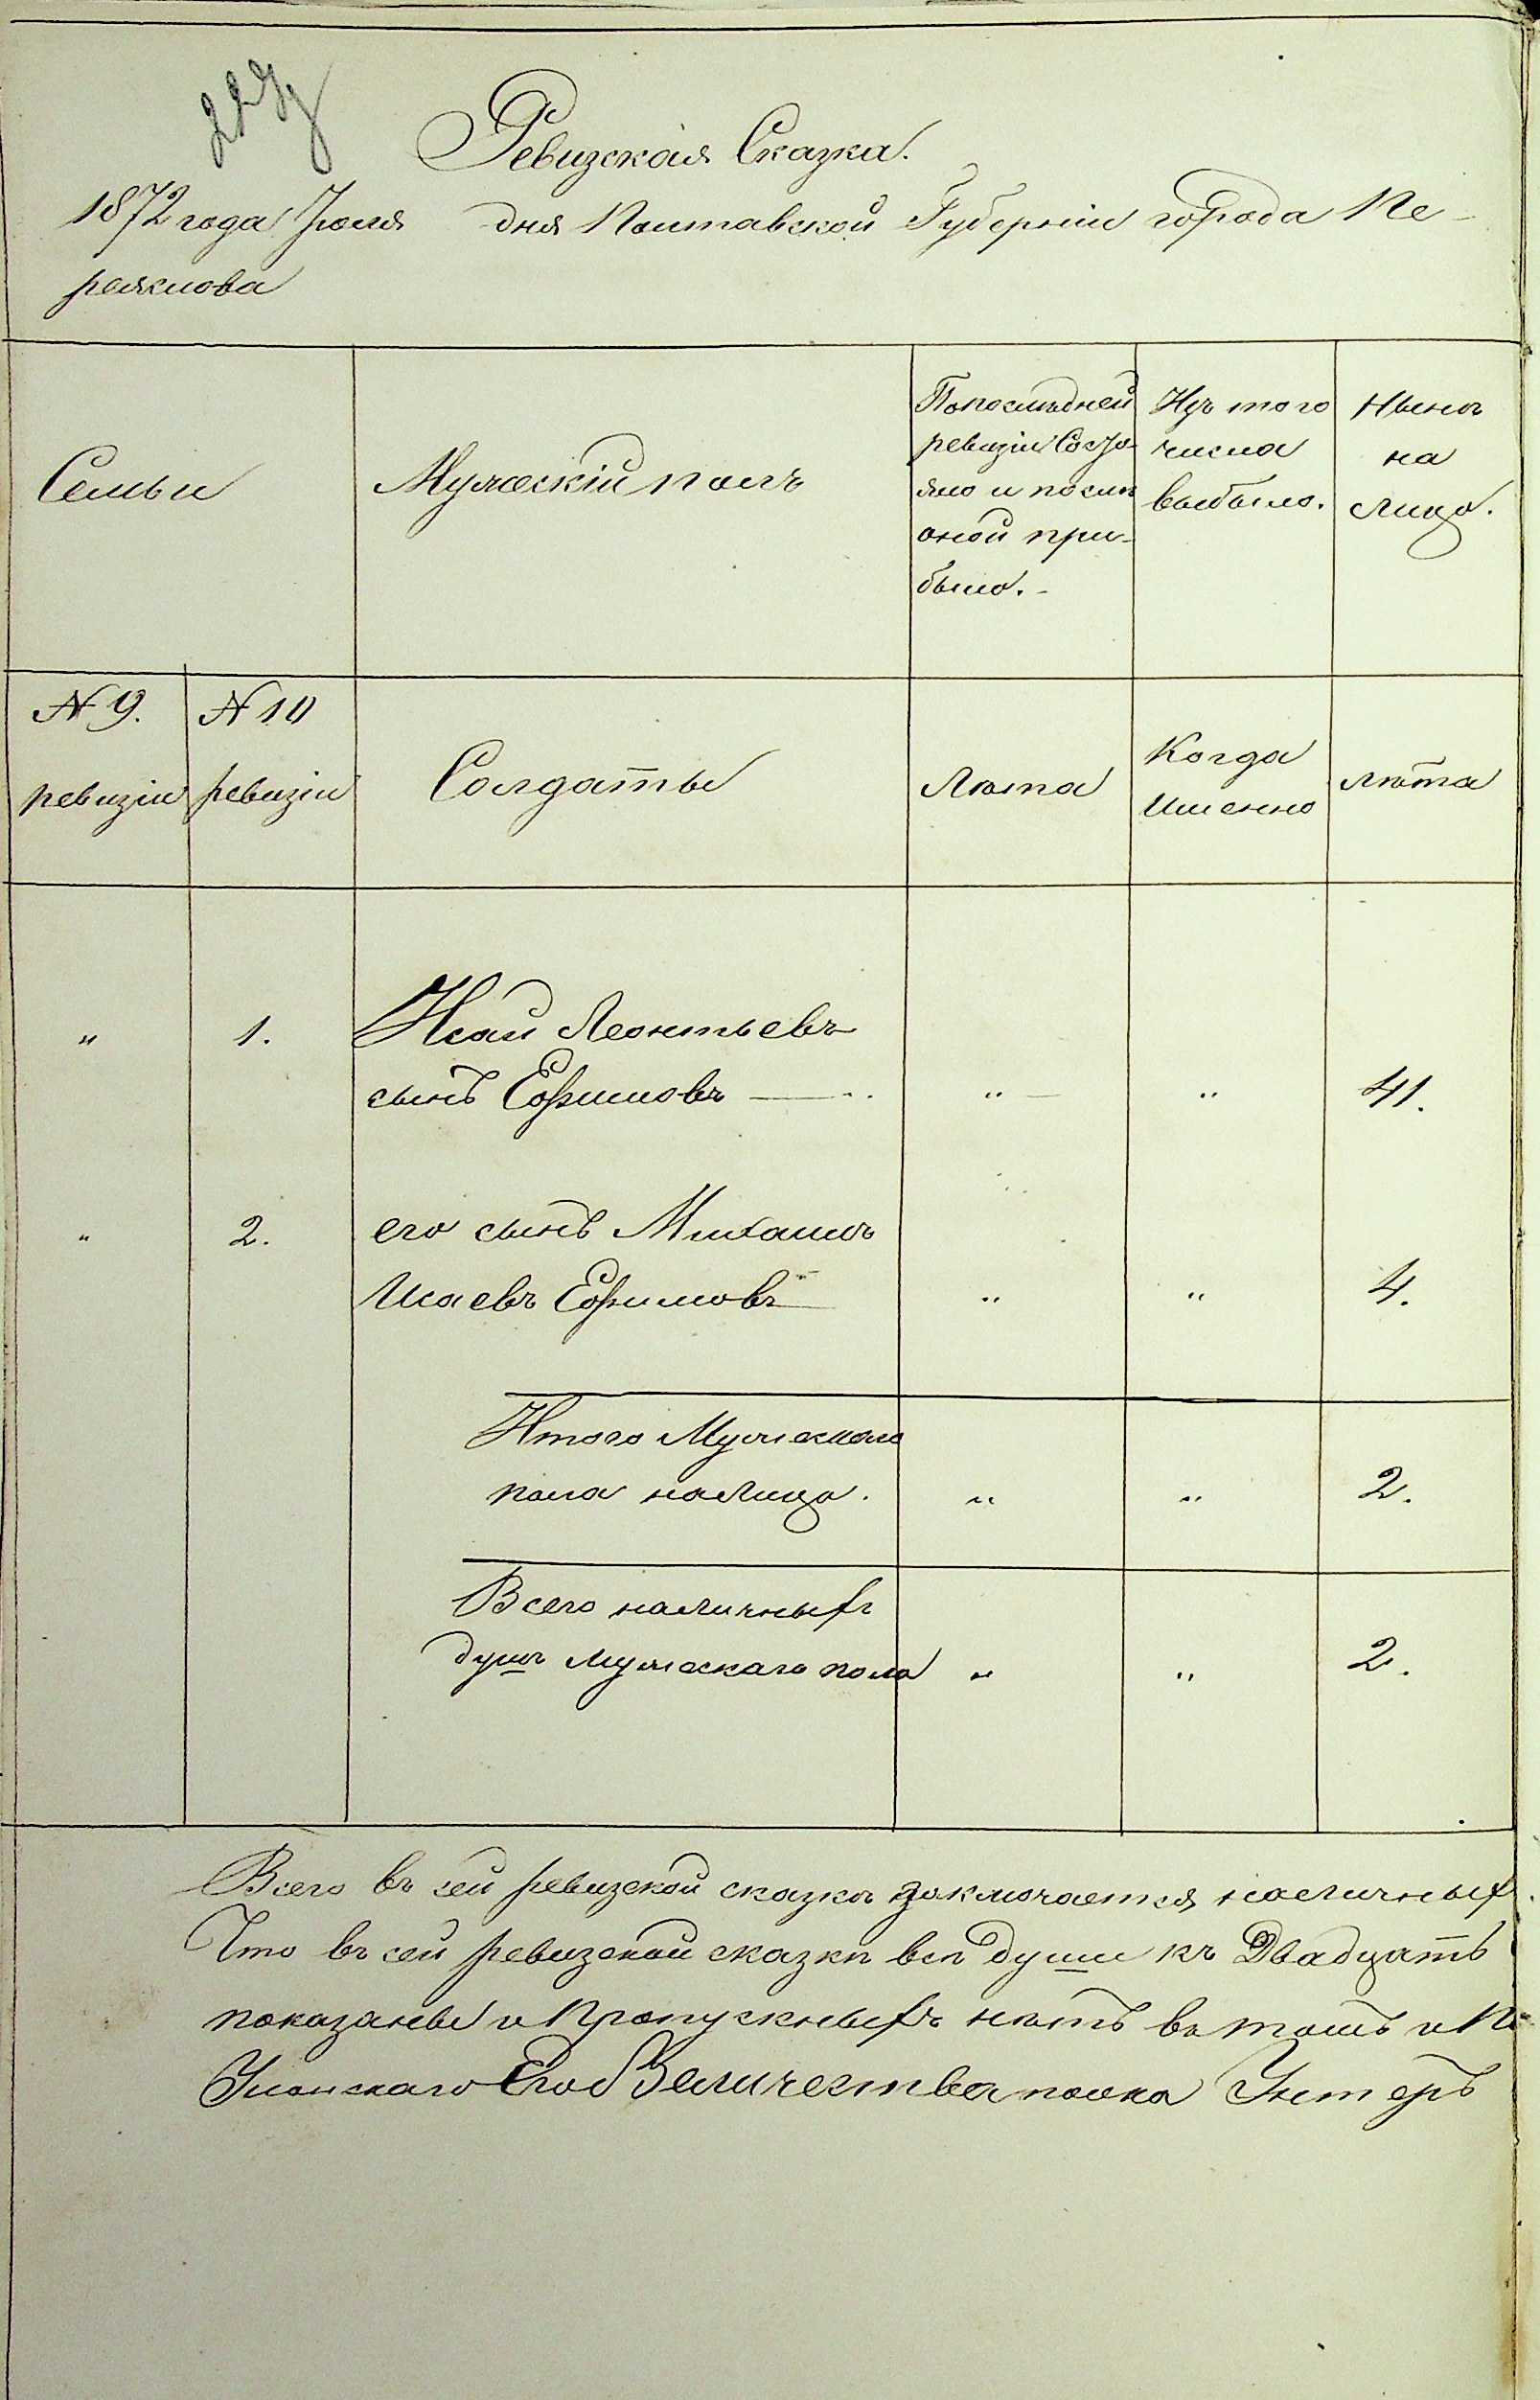 Ревизская Сказка.
1872 года Іюля дня Полтавской Губерніи города Пе-
реяслова
Семьи
Мужескій полъ
По последней
ревизіи Состо-
яло и после
оной при-
было.-
Изъ того
числа
выбыло.
Ныне
на
лицо.
№ 9.
ревизіи
№ 10
ревизіи
Солдаты
Лѣта
Когда
Именно
лѣта
" 1. Исай Леонтьевъ
сынъ Ефимовъ — " — " 41.
" 2. его сынъ Михаилъ
Исаевъ Ефимовъ " " 4.
Итого Мужескаго
пола на лицо. " " 2.
Всего наличныхъ
душъ мужескаго пола " " 2.
Всего въ сей ревизской сказкѣ заключается наличныхъ.
Что въ сей ревизской сказкѣ всѣ души къ Двадцать
показаны и Пропускныхъ нѣтъ въ томъ и
Уланскаго Его Величества полка Унтеръ